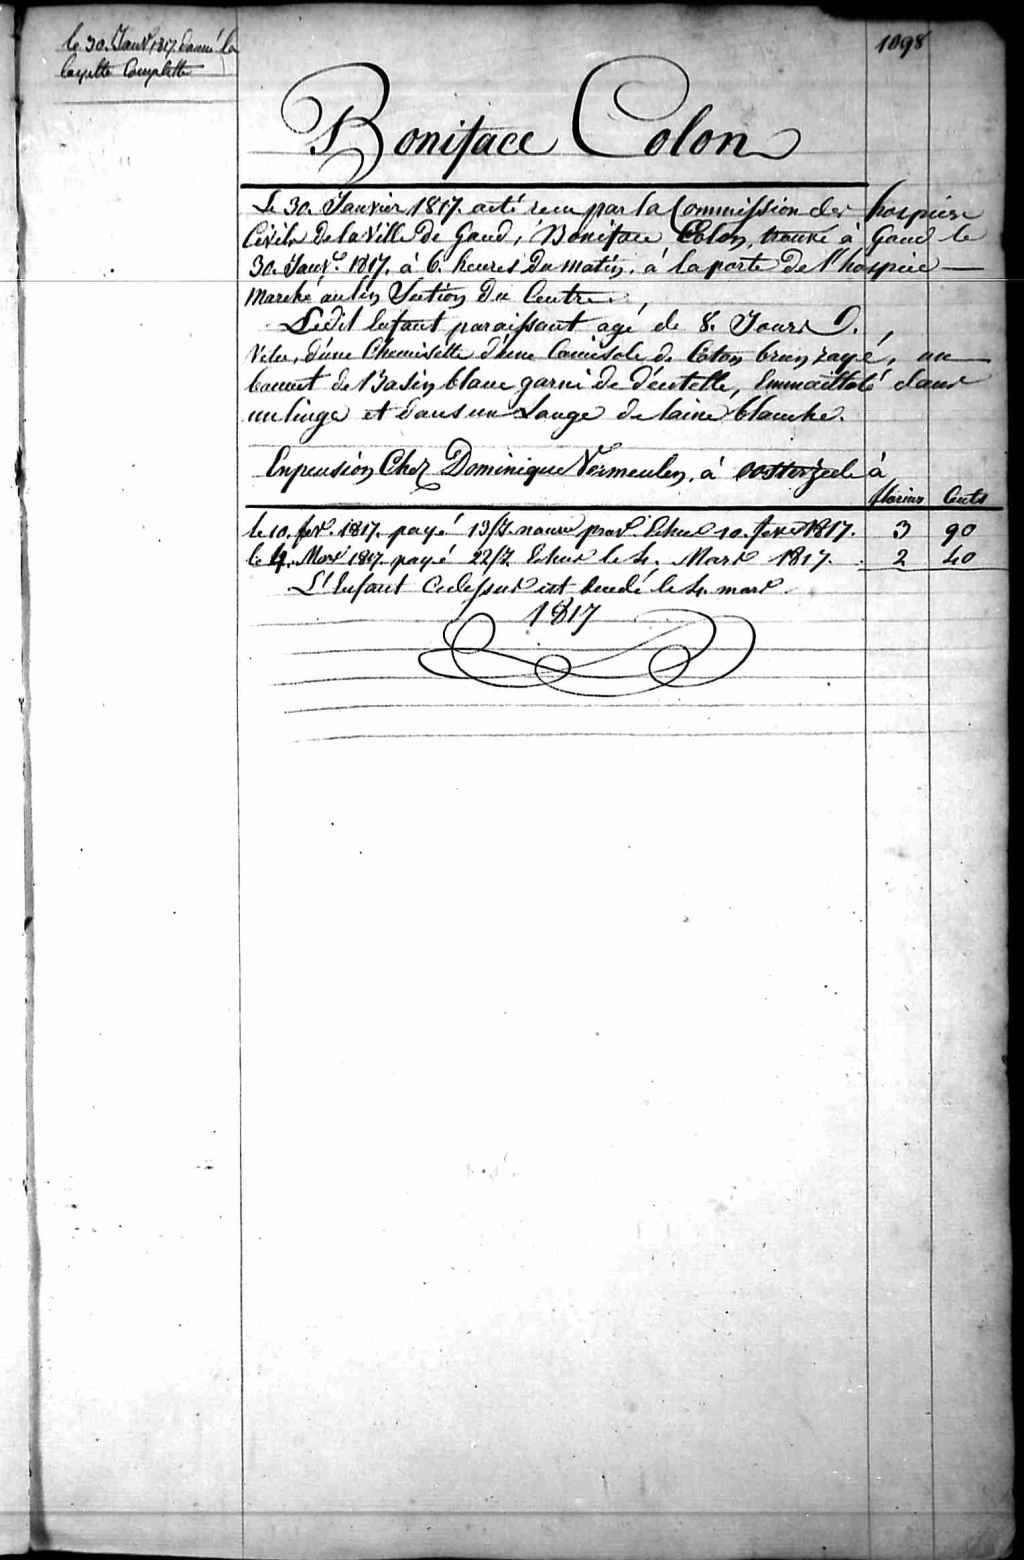 le 30. Janvr. 1817. donné la
layette Complette
1098
Boniface Colon
Le 30. Janvier 1817. a été recu par la Commission des hospices
Civils de la Ville de Gand, Boniface Colon, trouvé à Gand le
30. Janvr. 1817. à 6. heures du matin. à la porte de l'hospice
marché au lin Section du Centre.
Ledit Enfant paraissant agé de 8. Jours.
Vetu, d'une Chemisette d'une Camisole de Coton brun rayé, un
bonnet de Basin blanc garni de déntelle, Emmailloté dans
un linge et dans un Lange de laine blanche.
En pension Chez Dominique Vermeulen, à oosterzeele à
florins Cents
le 10. fevr. 1817. payé 13/J. Echus 10. fevr 1817. 3 90
le 4. Mars 1817. payé 22/J. Echus le 4. Mars 1817. 2 40
L'Enfant Cidessus est decedé le 4. mars
1817